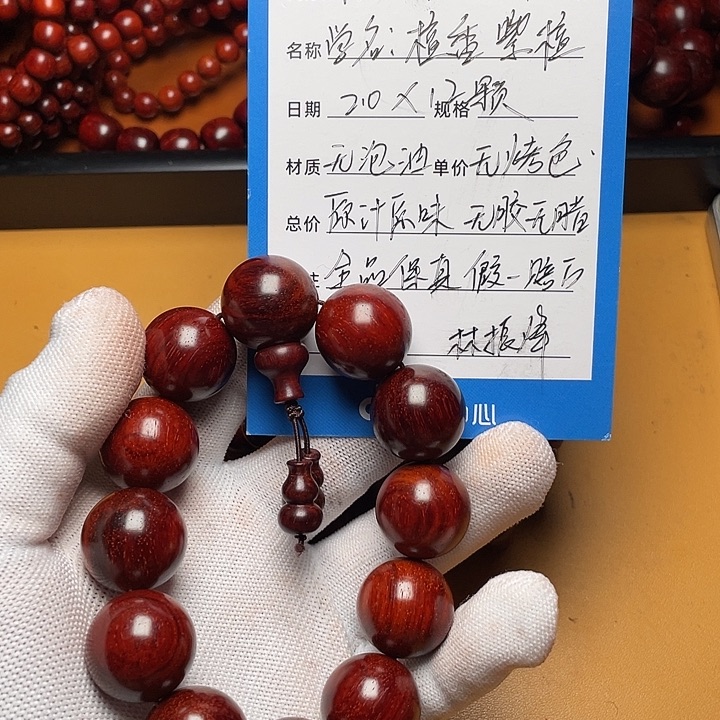 名称 学名:檀香紫檀
日期 2.0X12 规格 颗
材质 无泡油 单价 无烤色.
总价 原汁原味 无胶无腊
全品保真 假一赔万
林振
心